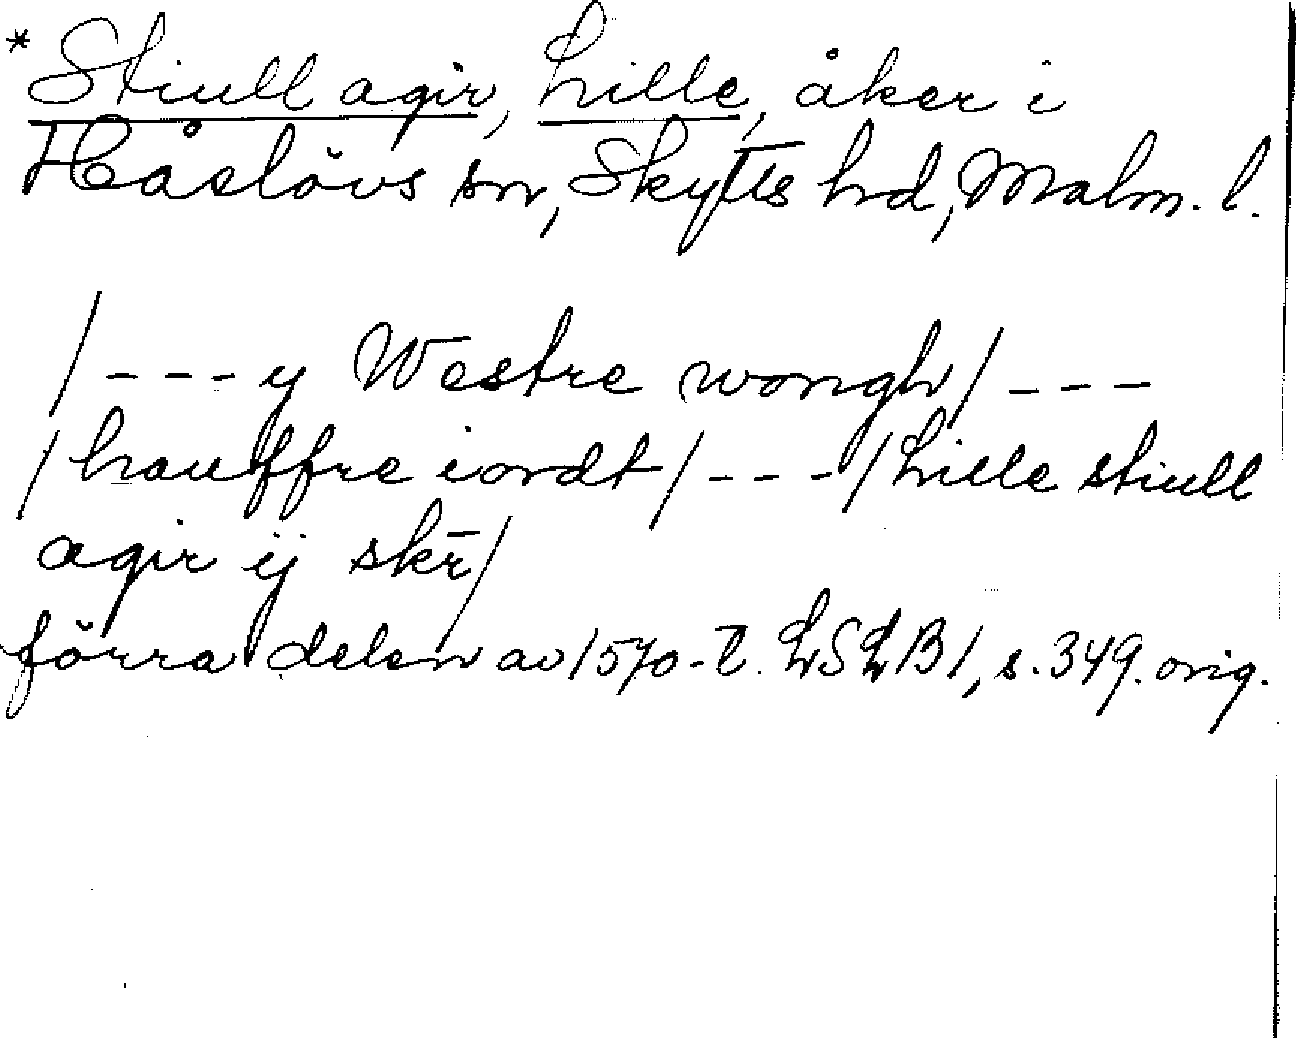 * Stiull agir, Lille, åker i
Håslövs sn, Skytts hd, Malm. l.
/ - - - y Westre wongh / - - -
/ hauffre iordt / - - - / Lille stiull
agir ij skr̄ /
förra delen av 1570-t. LSLB 1, s. 349. orig.